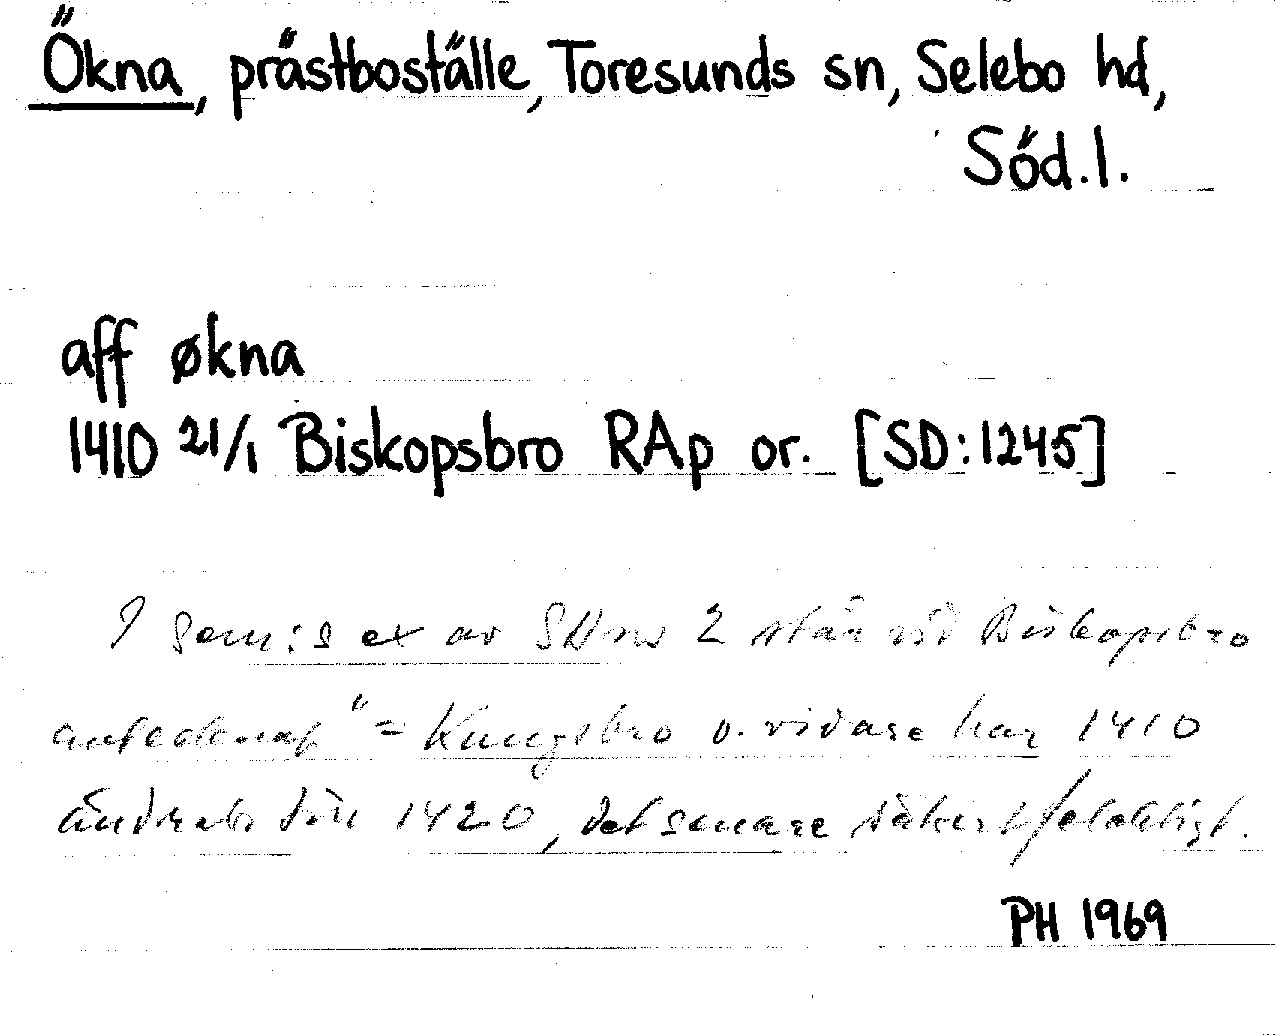 Ökna, prästboställe, Toresunds sn, Selebo hd,
Söd.l.
aff økna
1410 21/1 Biskopsbro RAp or. [SD:1245]
I Sem:s ex av SDns 2 står vid Biskopsbro
"= Kungsbro o. vidare har 1410
ändrats till 1420, det senare säkert felaktigt.
PH 1969